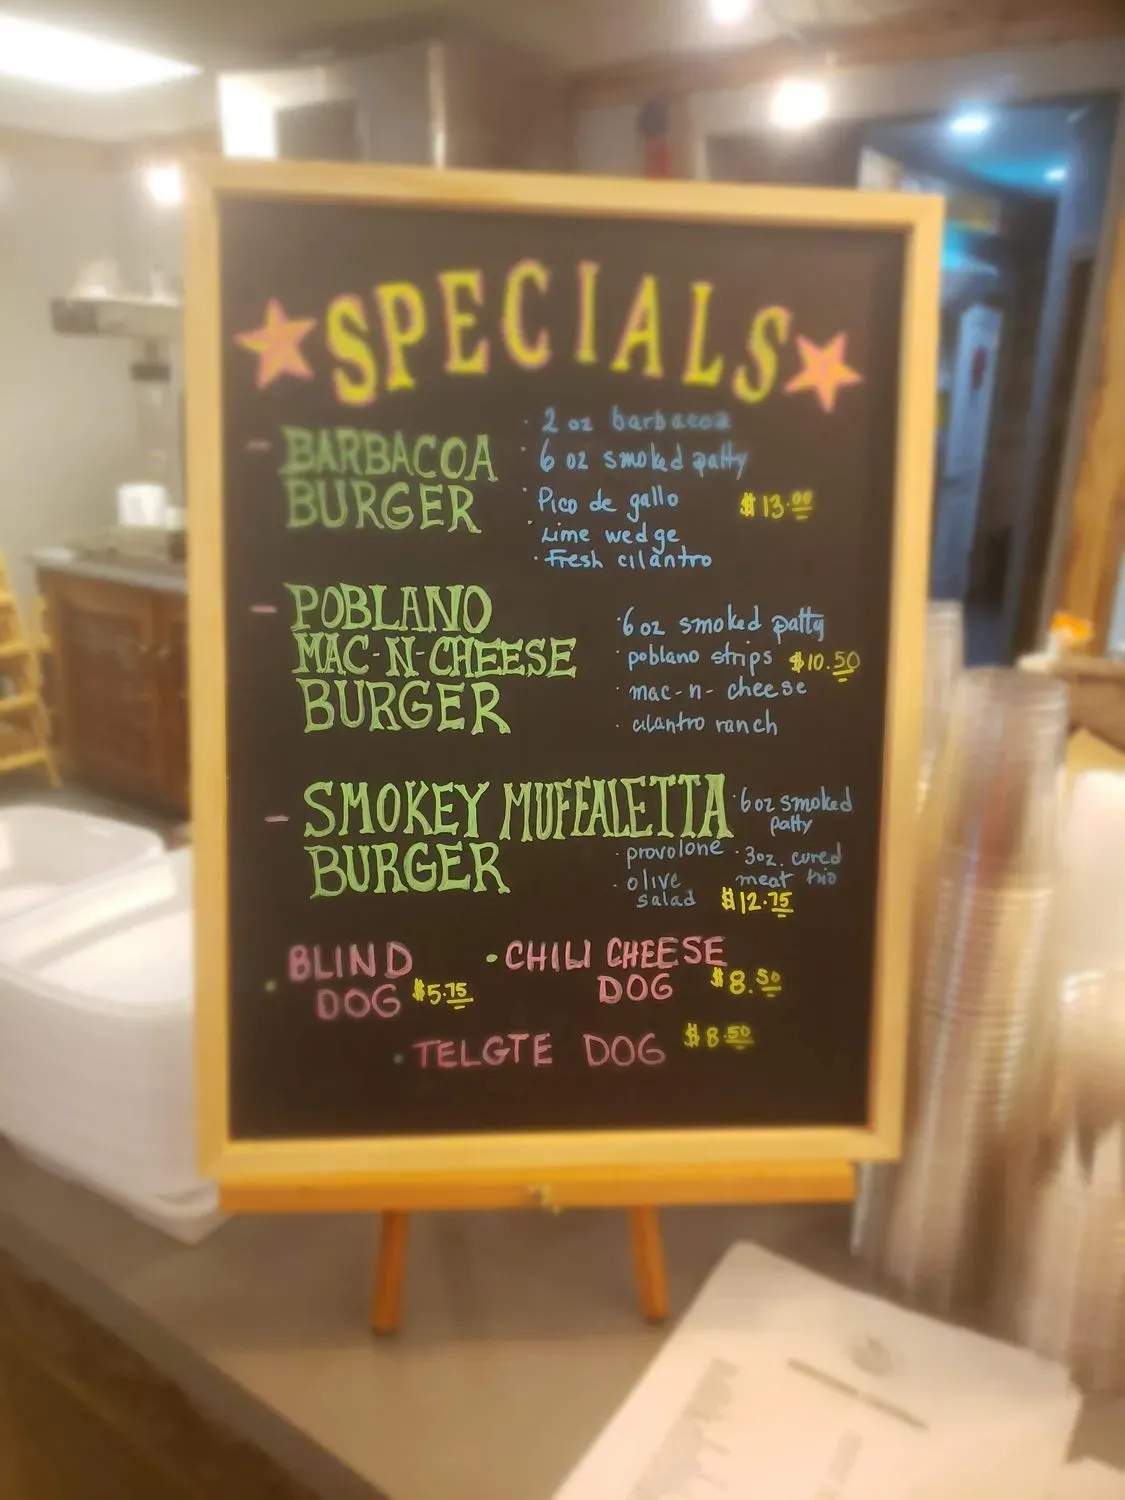 SPECIALS
- BARBACOA
BURGER
· 2 oz barbacoa
· 6 oz smoked patty
· Pico de gallo
$13.00
· Lime wedge
· Fresh cilantro
- POBLANO
MAC-N-CHEESE
BURGER
· 6 oz smoked patty
· poblano strips $10.50
· mac-n-cheese
· cilantro ranch
- SMOKEY MUFFALETTA
BURGER
· 6 oz smoked
patty
· provolone · 3oz. cured
meat trio
· olive
salad
$12.75
· BLIND
DOG $5.75
· CHILI CHEESE
DOG $8.50
· TELGTE DOG $8.50